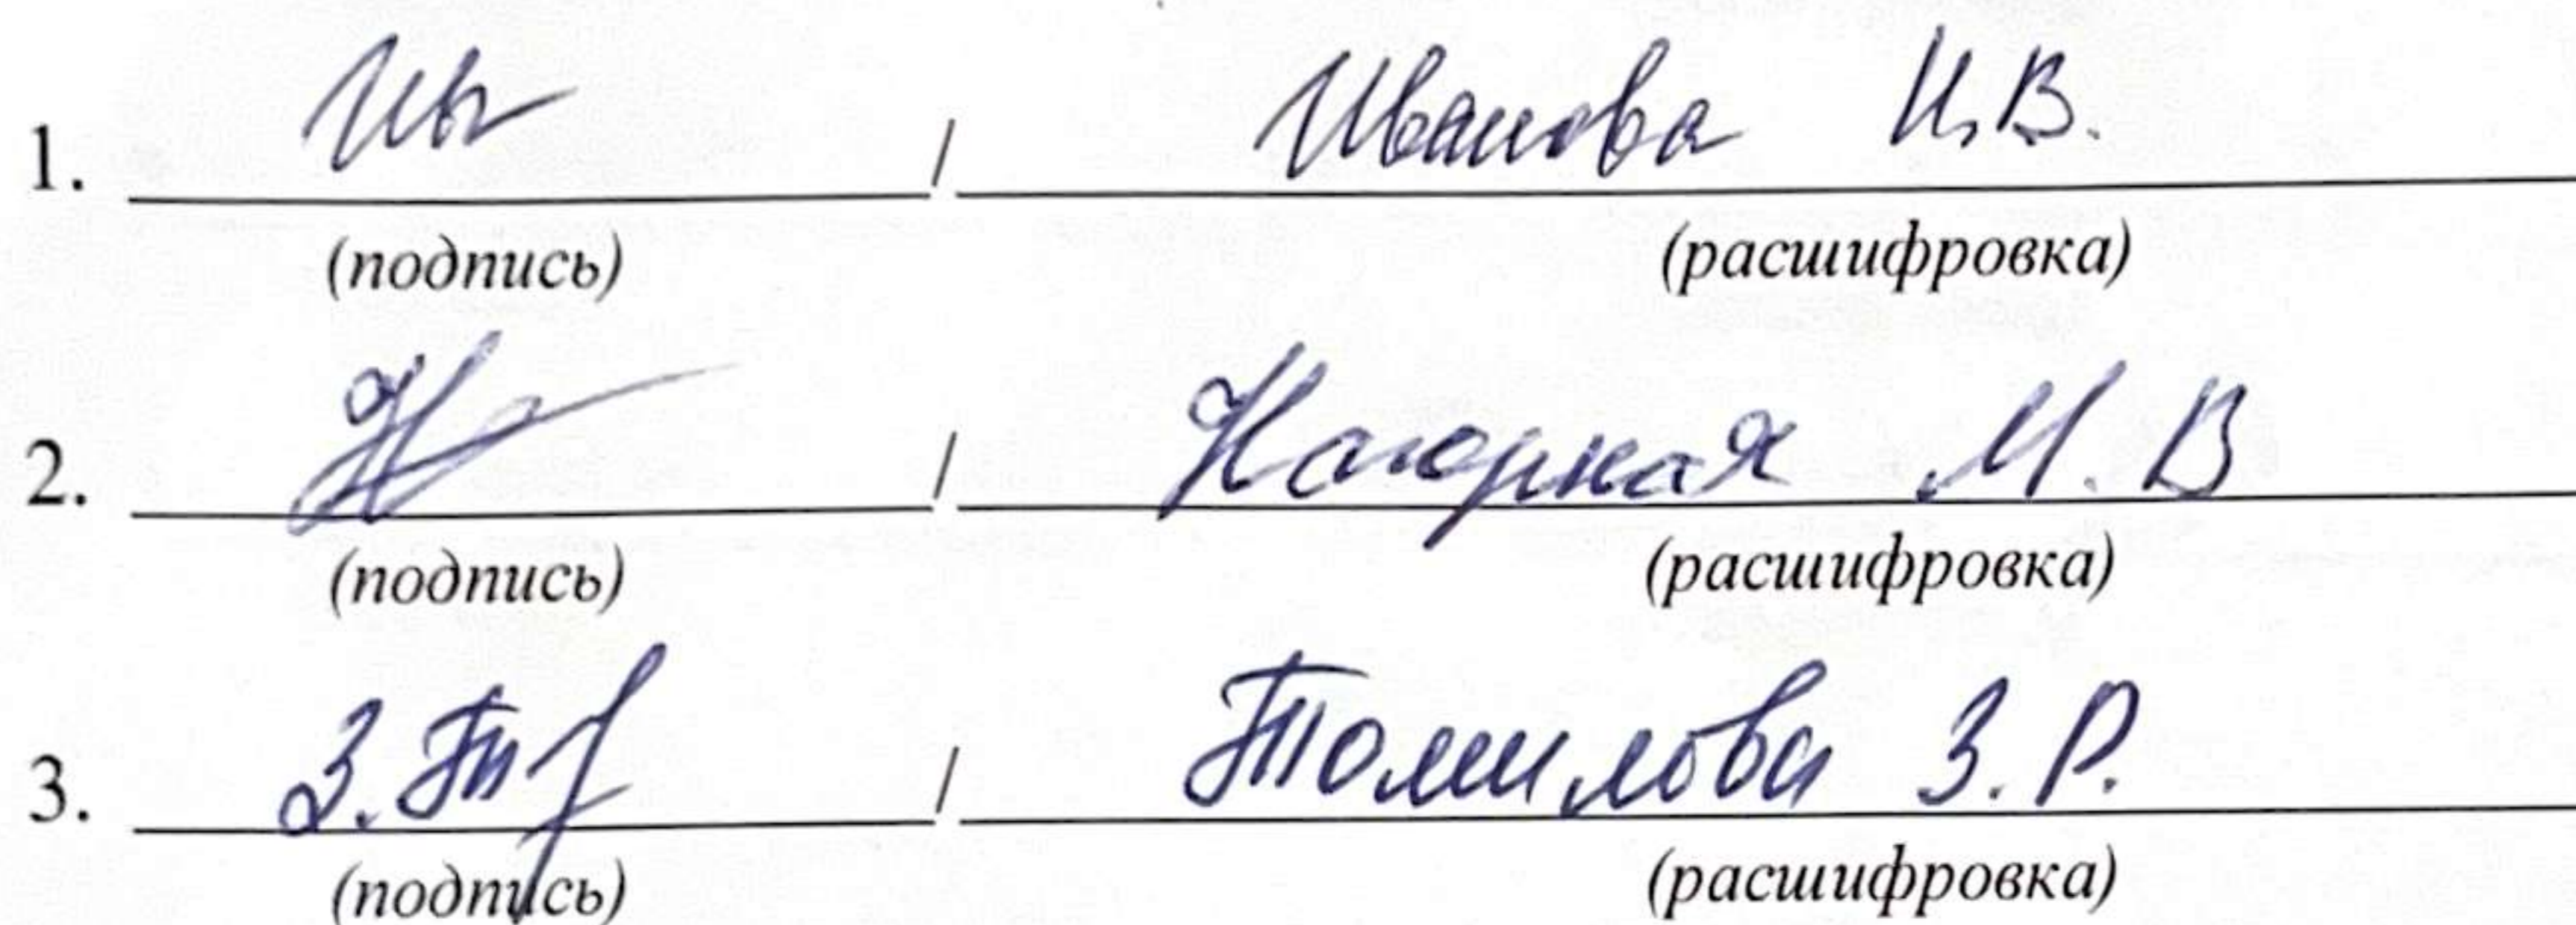 1. / Иванова И.В.
(подпись) (расшифровка)
2. / Нагорная М. В
(подпись) (расшифровка)
3. З.Тт / Томилова З. Р.
(подпись) (расшифровка)